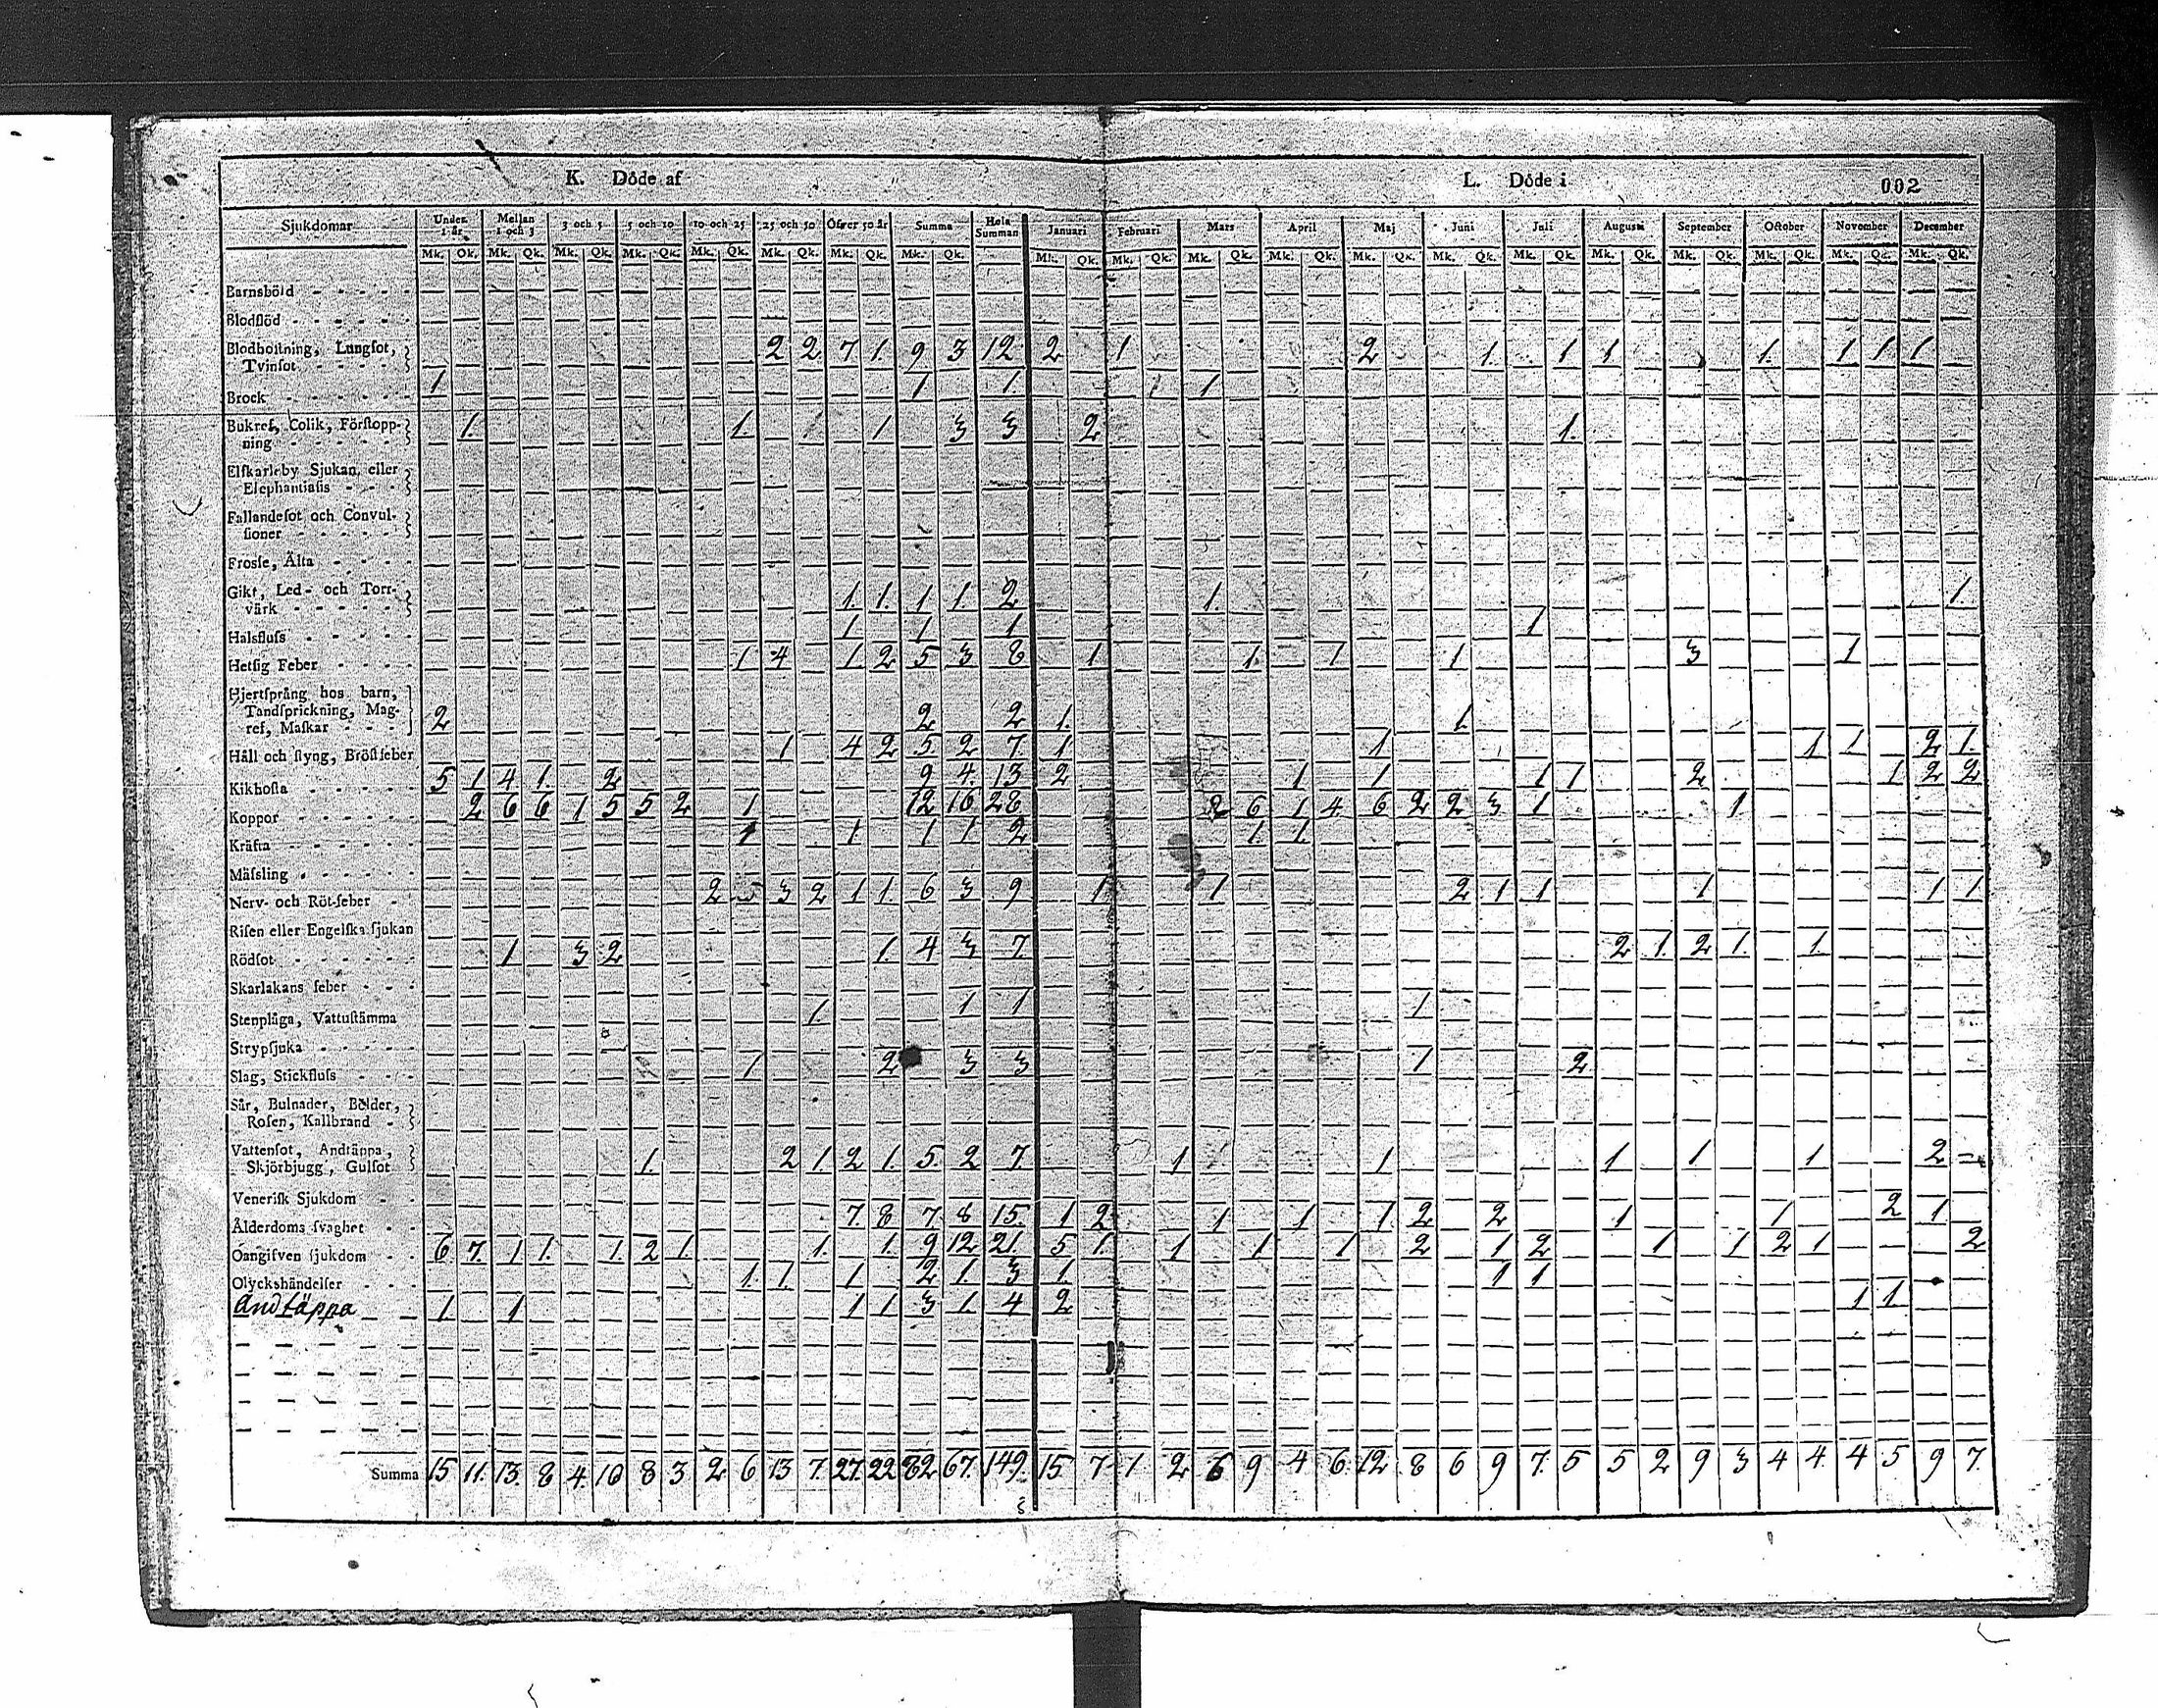 K. Döde af
L. Döde i
002
Sjukdomar
Under 1 år Mellan 1 och 3 3 och 5 5 och 10 10 och 25 25 och 50 Öfver 50 år Summa Hela Summan Januari Februari Mars April Maj Juni Juli Augusti September October November December
Mk. Qk. Mk. Qk. Mk. Qk. Mk. Qk. Mk. Qk. Mk. Qk. Mk. Qk. Mk. Qk. Mk. Qk. Mk. Qk. Mk. Qk. Mk. Qk. Mk. Qk. Mk. Qk. Mk. Qk. Mk. Qk. Mk. Qk. Mk. Qk. Mk. Qk. Mk. Qk.
Barnsbörd
Blodflöd
Blodhostning, Lungsot,
Tvinsot 2 2 7 1 9 3 12 2 1 2 1 1 1 1 1 1 1
Brock 1 1 1 1
Bukref, Colik, Förstopp-
ning 1 1 1 3 3 2 1
Elfkarleby Sjukan, eller
Elephantiasis
Fallandesot och Convul-
sioner
Frossa, Älta
Gikt, Led- och Torr-
värk 1 1 1 1 2 1 1
Halsfluss 1 1 1 1
Hetsig Feber 1 4 1 2 5 3 8 1 1 1 1 3 1
Hjertsprång hos barn,
Tandsprickning, Mag-
ref, Maskar 2 2 2 1 1
Håll och styng, Bröstfeber 1 4 2 5 2 7 1 1 1 1 2 1
Kikhosta 5 1 4 1 2 9 4 13 2 1 1 1 1 2 1 2 2
Koppor 2 6 6 1 5 5 2 1 12 16 28 2 6 1 4 6 2 2 3 1 1
Kräfta 1 1 1 1 2 1 1
Mässling
Nerv- och Röt-feber 2 3 2 1 1 6 3 9 1 1 2 1 1 1 1 1
Risen eller Engelska sjukan
Rödsot 1 3 2 1 4 3 7 2 1 2 1 1
Skarlakans feber
Stenplåga, Vattustämma 1 1 1 1
Strypsjuka
Slag, Stickfluss 1 2 3 3 1 2
Sår, Bulnader, Bölder,
Rosen, Kallbrand
Vattensot, Andtäppa,
Skjörbjugg, Gulsot 1 2 1 2 1 5 2 7 1 1 1 1 1 2
Venerisk Sjukdom
Ålderdoms svaghet 7 8 7 8 15 1 2 1 1 1 2 2 1 1 2 1
Oangifven sjukdom 6 7 1 1 1 2 1 1 1 9 12 21 5 1 1 1 1 2 1 2 1 1 2 1 2
Olyckshändelser 1 1 1 2 1 3 1 1 1
Andtäppa 1 1 1 1 3 1 4 2 1 1
Summa 15 11 13 8 4 10 8 3 2 6 13 7 27 22 82 67 149 15 7 1 2 6 9 4 6 12 8 6 9 7 5 5 2 9 3 4 4 4 5 9 7